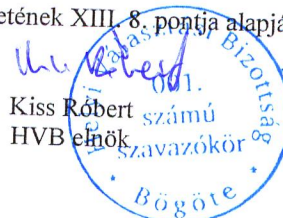 etének XIII. 8. pontja alapjá
Kiss Róbert
HVB elnök
Helyi Választási Bizottság
001.
számú
szavazókör
* Bögöte *